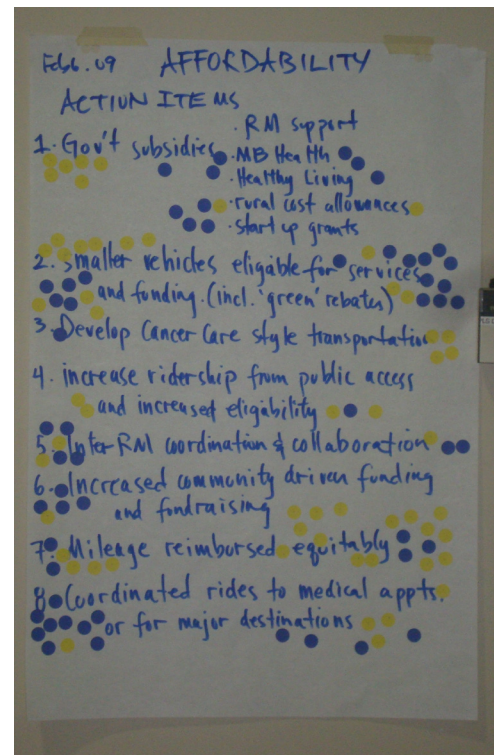 Feb 6.09 AFFORDABILITY
ACTION ITEMS
1. Gov't subsidies · RM support
· MB Health
· Healthy Living
· rural cost allowances
· start up grants
2. Smaller vehicles eligable for services
and funding. (incl. 'green' rebates)
3. Develop Cancer Care style transportation
4. increase ridership from public access
and increased eligability
5. Inter RM coordination & collaboration
6. Increased community driven funding
and fundraising
7. Mileage reimbursed equitably
8. Coordinated rides to medical appts.
or for major destinations